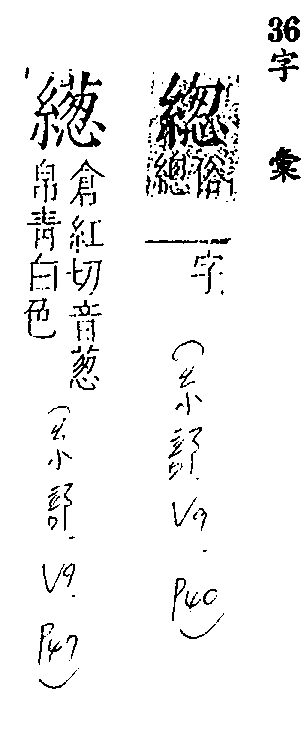 36字彙
緫
俗
總
字
(糸部. V9. P40)
繱
倉紅切音葱
帛青白色
(糸部. V9. P47)